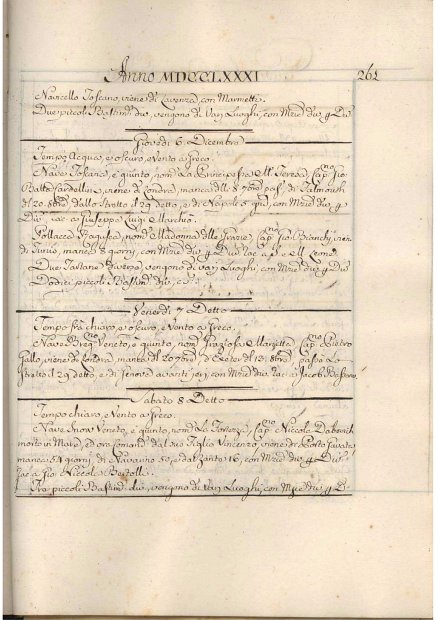 Anno MDCCLXXXI 261
Navicello Toscano, viene di Lavenza, con Marmetti.
Due piccoli Bastim. div. vengono di Varj Luoghi, con Merc. div. p. Div.
Giovedì 6 Dicembre
Tempo Acqua, e oscuro, e Vento a Greco.
Nave Toscana, è quinto, nom. La Principessa M. Teresa, Cap. Gio
Batta Sardellini, viene di Londra, manca dell 8 7bre pass. di Falmouth
del 20. 8bre dallo Stretto il 29 detto, e di Napoli 5 gni, con Merc. div. p.
Div. rac. a Giuseppe Luigi
Pollacca Ragusea, nom. Madonna delle Grazie Cap. Gio Bianchi, viene
di Tunis, manca 8 giorni, con Merc. div. p. Div. rac. a
Due Tartane vengono di Varj Luoghi, con Merc. div. p. Div.
Dodici piccoli Bastim. div.
Venerdì 7 Detto
Tempo fra chiaro, e oscuro, e Vento a Greco.
Nave Veneto, è quinto, nom. Graziosa Marietta Cap. Pietro
Gallo, viene di Londra, manca del 20 7bre, d'Exeter del 12. 8bre passò Lo
Stretto il 29 detto, e di Genova avanti jeri, con Merc. div. rac. a Jacob
Sabato 8 Detto
Tempo chiaro, e Vento a Greco.
Nave Snow Veneto, è quinto, nom. La Fortezza, Cap. Niccolò Dabovich
morto in Mare, ed ora comand. dal suo Figlio Vincenzo, viene
manca 54 giorni, di Navarino 50, e dal Zante 16, con Merc. div. p. Div.
rac. a Gio Niccola Bertolli.
Tre piccoli Bastim. div. vengono di Varj Luoghi, con Merc. div. p. D.